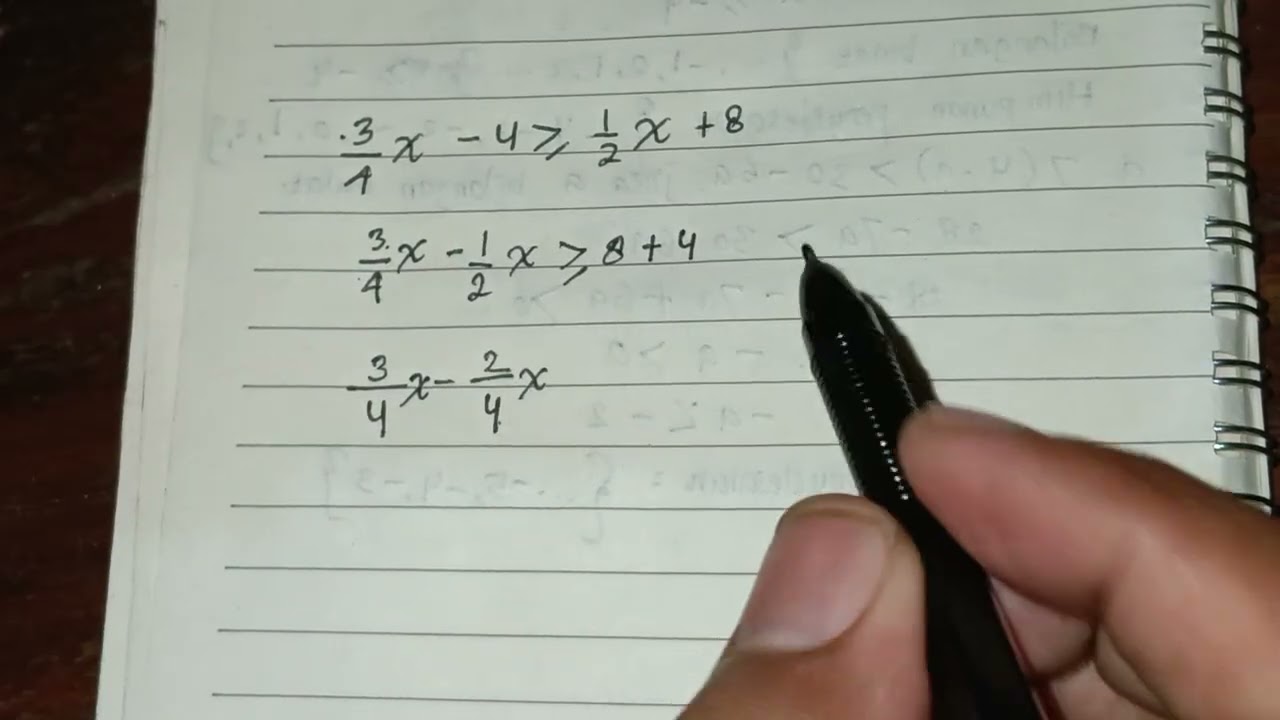 3/4 x - 4 ≥ 1/2 x + 8
3/4 x - 1/2 x ≥ 8 + 4
3/4 x - 2/4 x